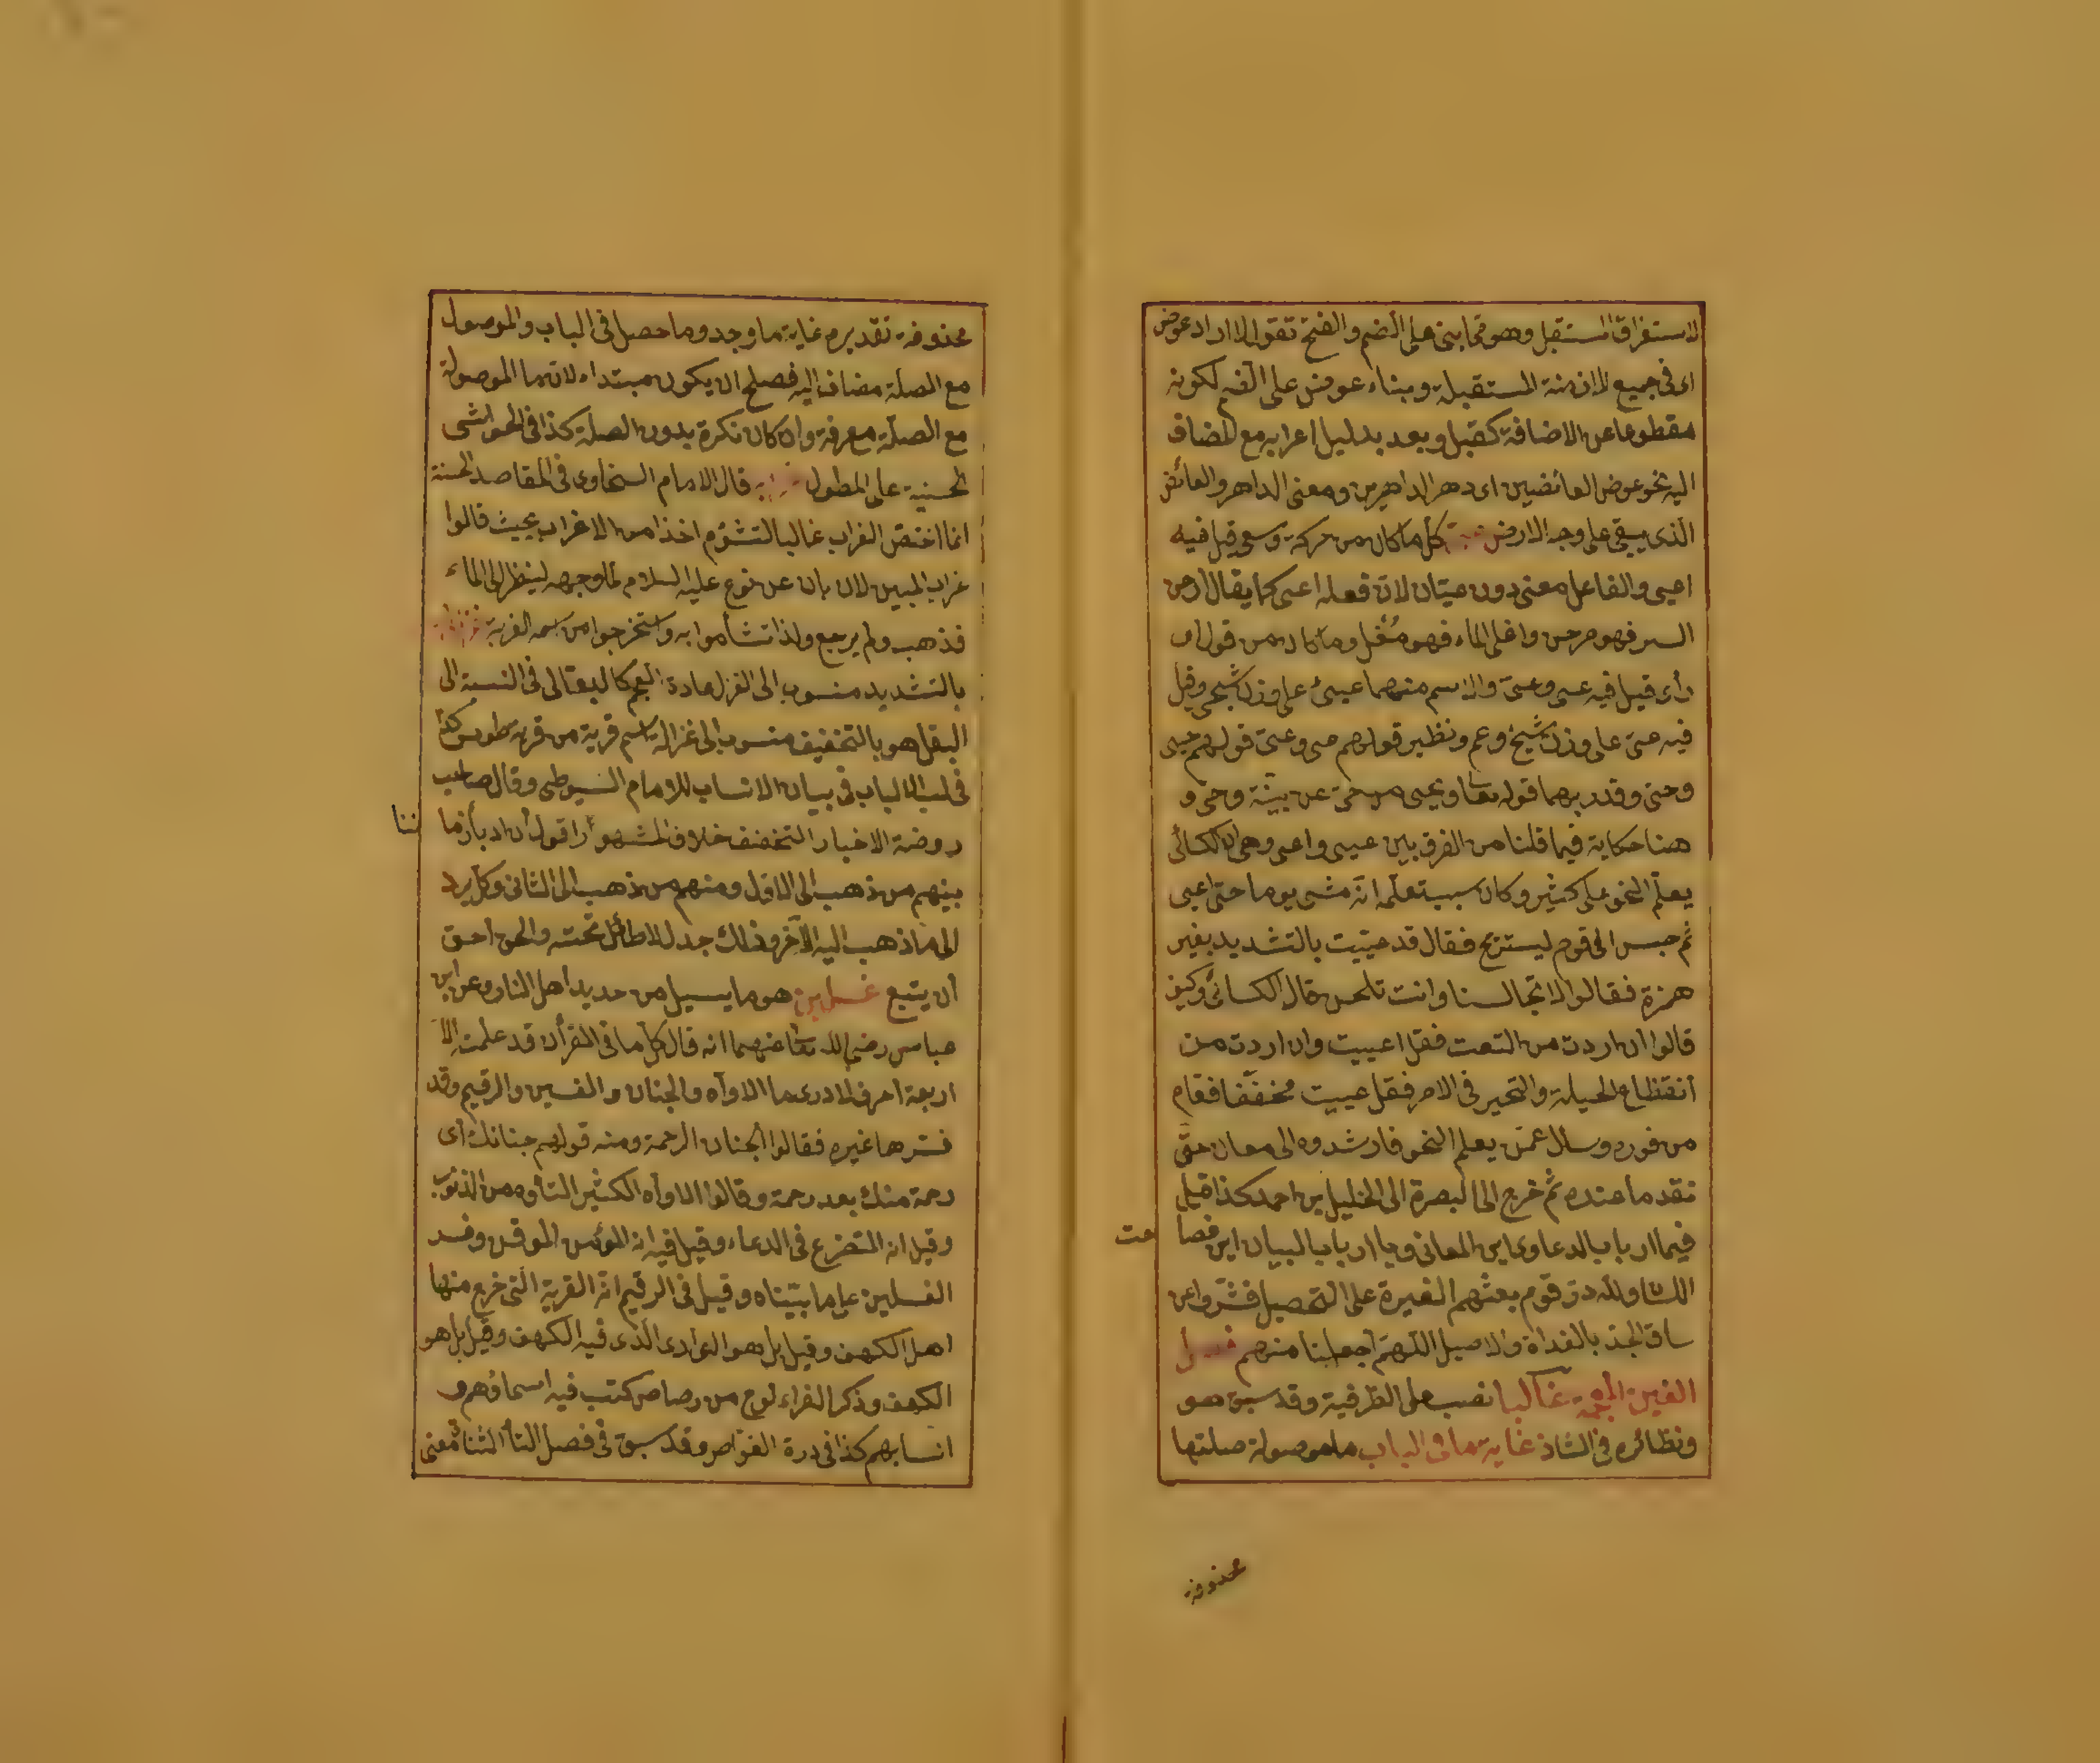 لاستغراق المستقبل وهو مما بنى على الضم والفتح تقول لا اراد عوض
اى فى جميع الازمنة المستقبلة وبناء عوض على الضم لكونه
مقطوعا عن الاضافة كقبل وبعد بدليل اعرابه مع المضاف
اليه نحو عوض العائضين اى دهر الداهرين ومعنى الداهر والعائض
الذى يبقى على وجه الارض كل ما كان من حركة وسعى قيل فيه
اعيى والفاعل معنى دون عيّان لان فعله اعيى كما يقال ارخى
الستر فهو مرخ واغلى الماء فهو مُغْل وما كان من قول او
رأى قيل فيه عيى وعىّ والاسم منهما عيىّ على وزن شجى وقيل
فيه عىّ على وزن شيخ وعم ونظير قولهم عيى وعىّ قولهم حيى
وحىّ وقد ربهما قوله تعا ويحيى من حىّ عن بينة وحى و
هنا حكاية فيما قلنا من الفرق بين عيى واعيى وهى ان الكسائى
يعلم النحو على كثير وكان سبب تعلمه انه مشى يوما حتى اعيى
ثم جبس الى قوم ليستريح فقال قد عيّيت بالتشديد بغير
همزة فقالوا لا تجالسنا وانت تلحن قال الكسائى وكيف
قالوا ان اردت من التعب فقل اعييت وان اردت من
انقطاع الحيلة والتحير فى الامر فقل عييت مخففا فقام
من فوره وسأل عمن يعلم النحو فارشدوه الى معان حتى
نفد ما عنده ثم خرج الى البصرة الى الخليل بن احمد كذا قيل
فيما ارباب الدعاوى اين المعانى ويا ارباب البيان اين فصا
حت
اللسان ولله در قوم بعثهم الغيرة على التحصيل فشمروا عن
ساق الجد بالغداة والاصيل اللهم اجعلنا منهم فصل
الغين المعجمة غالبا نصب على الظرفية وقد سبق هو
ونظائره فى الشاذ غاية ما فى الباب ما موصولة صلتها
محذوفة
محذوفة تقديره غاية ما وجد وما حصل فى الباب والموصول
مع الصلة مضاف اليه فصلح ان يكون مبتداء لان ما الموصولة
مع الصلة معرفة وان كان نكرة بدون الصلة كذا فى الحواشى
الحسنية على المطول قال الامام السخاوى فى المقاصد الحسنة
انما اختص الغراب غالبا التشؤم اخذا من الاغراب بحيث قالوا
غراب المبين لان بان عن نوح عليه السلام لما وجهه لينظر الى الماء
فذهب ولم يرجع ولذا تشأموا به واستخرجوا من اسمه الغربة
بالتشديد منسوب الى الغزل عادة العجم كالبقالى فى النسبة الى
البقل هو بالتخفيف منسوب الى غزالة اسم قرية من قرى طوس كذا
فى لب الالباب فى بيان الانساب للامام السيوطى وقال صاحب
روضة الاخبار التخفيف خلاف المشهور اقول ان ادباء زما
ننا
بينهم من ذهب الى الاول ومنهم من ذهب الى الثانى وكل يرد
الى ما ذهب اليه الآخر وذلك جدل لا طائل تحته والحق احق
ان يتبع غسلين هو ما يسيل من صديد اهل النار وعن ابن
عباس رضى الله تعا عنهما انه قال كل ما فى القرأن قد علمت الا
اربعة احرف لا ادرى ما الاواه والحنان والغسلين والرقيم وقد
فسرها غيره فقالوا الحنان الرحمة ومنه قولهم حنانك أى
رحمة منك بعد رحمة وقالوا الاواه الكثير التأوه من الذنوب
وقيل انه المتضرع فى الدعاء وقيل فيه انه المؤمن الموقن وفسر
الغسلين على ما بيّناه وقيل فى الرقيم انه القرية التى خرج منها
اهل الكهف وقيل بل هو الوادى الذى فيه الكهف وقيل بل هو
الكهف وذكر الفراء لوح من رصاص كتب فيه اسماؤهم و
انسابهم كذا فى درة الغواص وقد سبق فى فصل التاء المثناة معنى